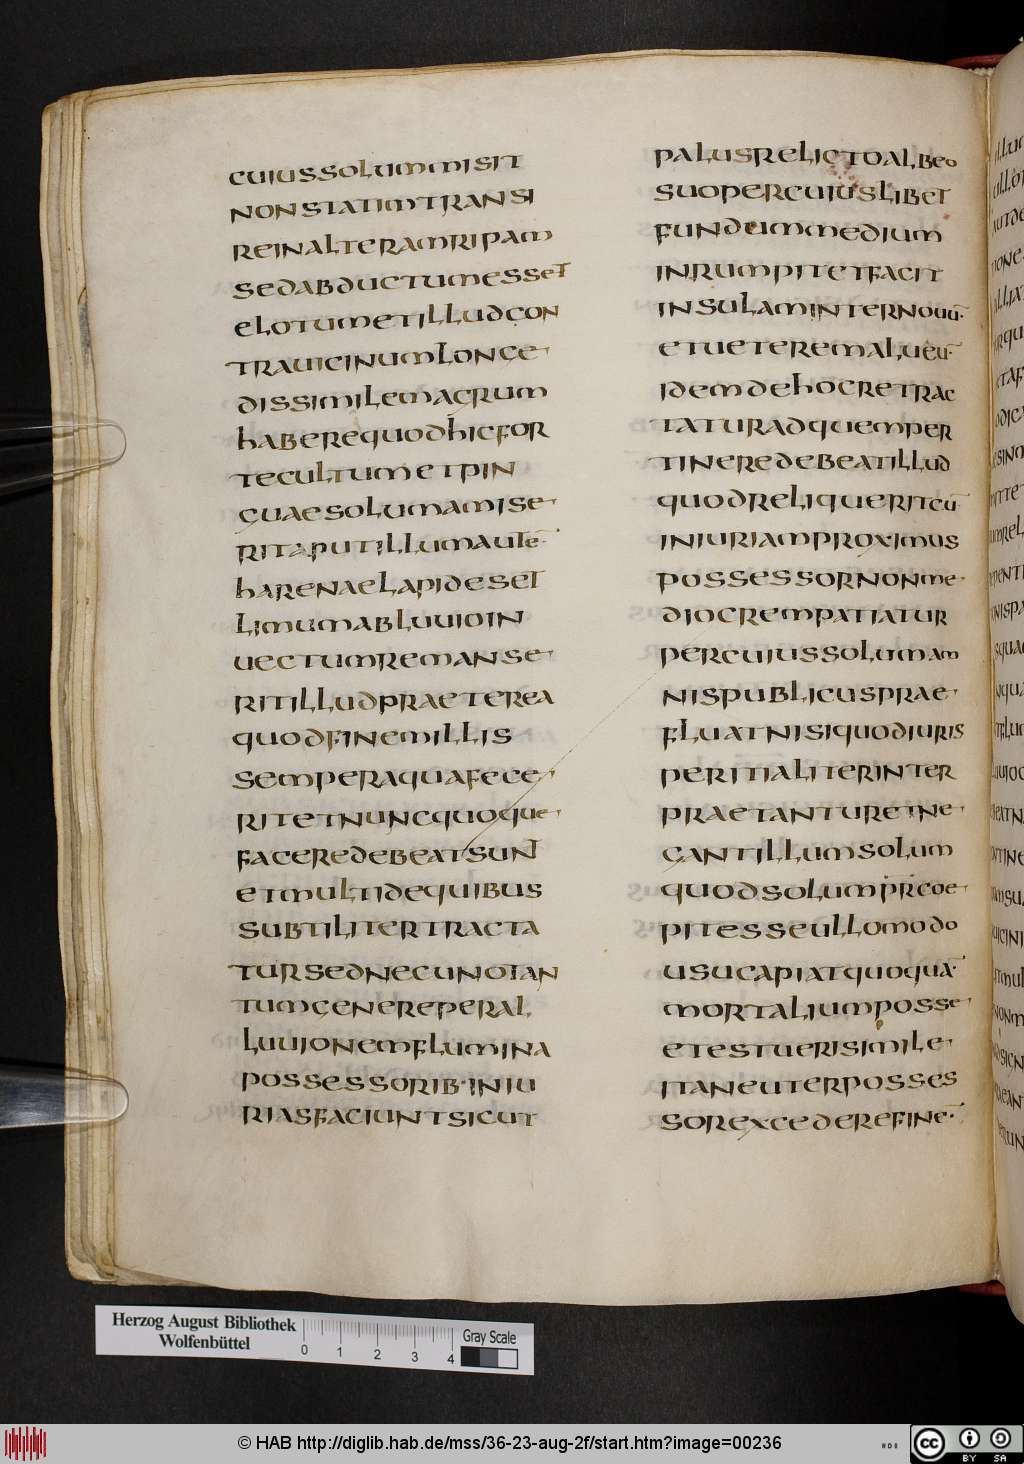 CUIUSSOLUMMISIT
NONSTATIMTRANSI
REINALTERAMRIPAM
SEDABDUCTUMESSET
ELOTUMETILLUDCON
TRAUICINUMLONGE
DISSIMILEMAGRUM
HABEREQUODHICFOR
TECULTUMETPIN
GUAESOLUMAMISE
RITAPUTILLUMAUTĒ·
HARENAELAPIDESET
LIMUMABLUUIOIN
UECTUMREMANSE
RITILLUDPRAETEREA
QUODFINEMILLIS
SEMPERAQUAFECE
RITETNUNCQUOQUE
FACEREDEBEATSUNT
ETMULTIDEQUIBUS
SUBTILITERTRACTA
TURSEDNECUNOTAN
TUMGENEREPERAL
LUUIONEMFLUMINA
POSSESSORIB·INIU
RIASFACIUNTSICUT
PALUSRELICTOALBEO
SUOPERCUIUSLIBET
FUNDUMMEDIUM
INRUMPITETFACIT
INSULAMINTERNOUŪ·
ETUETEREMALUEŪ·
IDEMDEHOCRETRAC
TATURADQUEMPER
TINEREDEBEATILLUD
QUODRELIQUERITCŪ·
INIURIAMPROXIMUS
POSSESSORNONME
DIOCREMPATIATUR
PERCUIUSSOLUMAM
NISPUBLICUSPRAE
FLUATNISIQUODIURIS
PERITIALITERINTER
PRAETANTURETNE
GANTILLUMSOLUM
QUODSOLUMPRCOE
PITESSEULLOMODO
USUCAPIATQUOQUĀ·
MORTALIUMPOSSE
ETESTUERISIMILE
ITANEUTERPOSSES
SOREXCEDEREFINĒ·
Herzog August Bibliothek
Wolfenbüttel
0 1 2 3 4
Gray Scale
© HAB http://diglib.hab.de/mss/36-23-aug-2f/start.htm?image=00236
HAB
CC BY SA